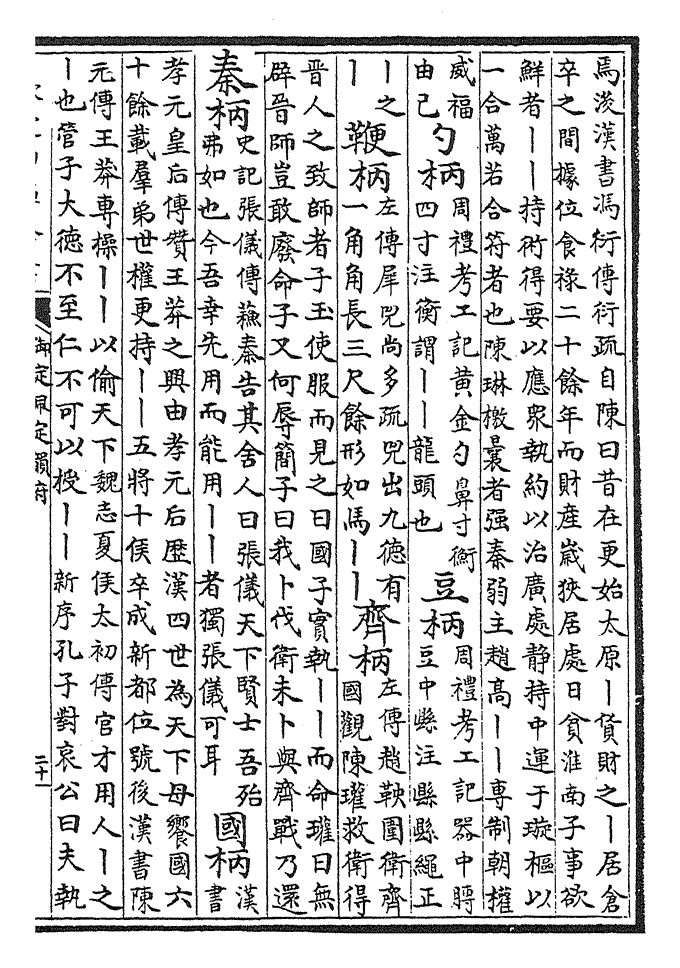 焉後漢書馮衍傳衍疏自陳曰昔在更始太原丨貨財之丨居倉
卒之間據位食祿二十餘年而財產歲狹居處日貧淮南子事欲
鮮者丨丨持術得要以應衆執約以治廣處静持中運于璇樞以
一合萬若合符者也陳琳檄曩者强秦弱主趙高丨丨專制朝權
威福
由己
勺柄
周禮考工記黃金勺鼻寸衡
四寸注衡謂丨丨龍頭也
豆柄
周禮考工記器中䏝
豆中縣注縣縣繩正
丨之
丨
鞭柄
左傳犀兕尚多疏兕出九德有
一角角長三尺餘形如馬丨丨
齊柄
左傳趙鞅圍衛齊
國觀陳瓘救衛得
晉人之致師者子玉使服而見之曰國子實執丨丨而命瓘曰無
辟晉師豈敢廢命子又何辱簡子曰我卜伐衛未卜與齊戰乃還
秦柄
史記張儀傳蘇秦告其舍人曰張儀天下賢士吾殆
弗如也今吾幸先用而能用丨丨者獨張儀可耳
國柄
漢
書
孝元皇后傳贊王莽之興由孝元后歷漢四世為天下母饗國六
十餘載羣弟世權更持丨丨五將十侯卒成新都位號後漢書陳
元傳王莽專操丨丨以偷天下魏志夏侯太初傳官才用人丨之
丨也管子大德不至仁不可以授丨丨新序孔子對哀公曰夫執
御定佩文韻府
二十一